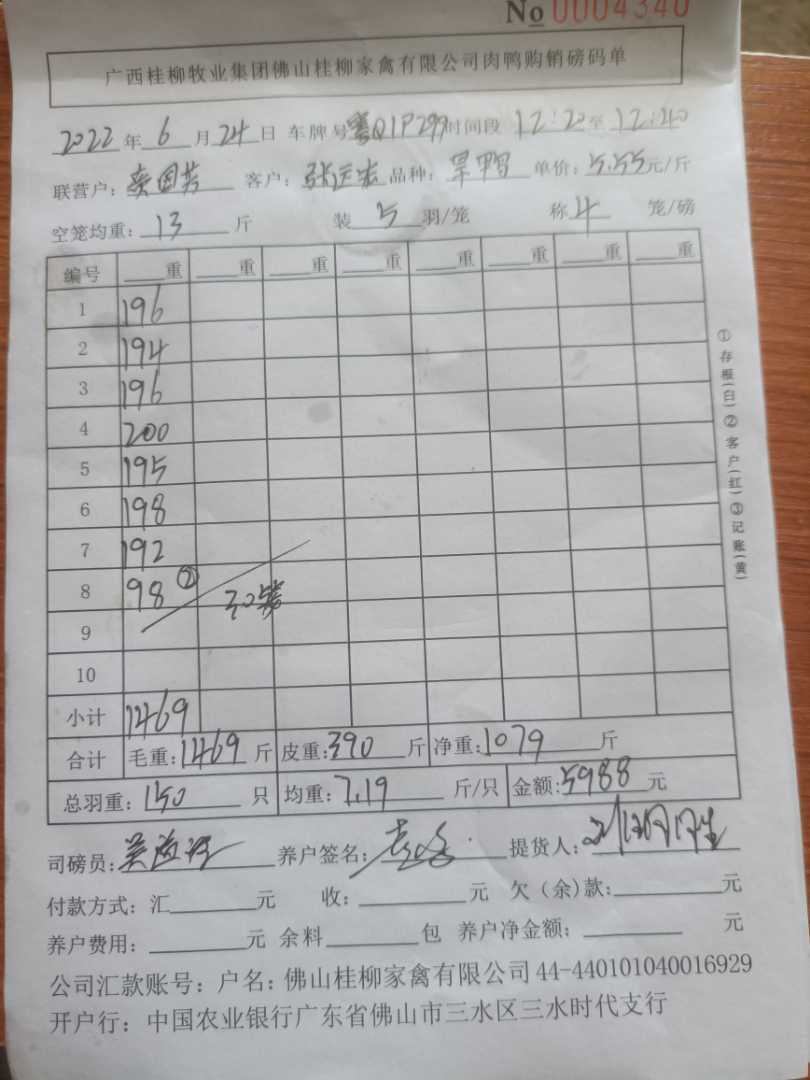 No 0004340
广西桂柳牧业集团佛山桂柳家禽有限公司肉鸭购销磅码单
2022年6月24日 车牌号粤Q1P299时间段12:20至12:40
联营户: 客户: 品种:旱鸭 单价:5.55元/斤
空笼均重:13斤 装5羽/笼 称4笼/磅
编号 重 重 重 重 重 重 重 重
1 196
2 194
3 196
4 200
5 195
6 198
7 192
8 98 ②
30笼
9
10
小计 1469
合计 毛重:1469斤 皮重:390斤 净重:1079斤
总羽重:150只 均重:7.19斤/只 金额:5988元
司磅员: 养户签名: 提货人:
付款方式:汇 元 收: 元 欠(余)款: 元
养户费用: 元 余料 包 养户净金额: 元
公司汇款账号:户名:佛山桂柳家禽有限公司 44-440101040016929
开户行:中国农业银行广东省佛山市三水区三水时代支行
①存根(白)②客户(红)③记账(黄)